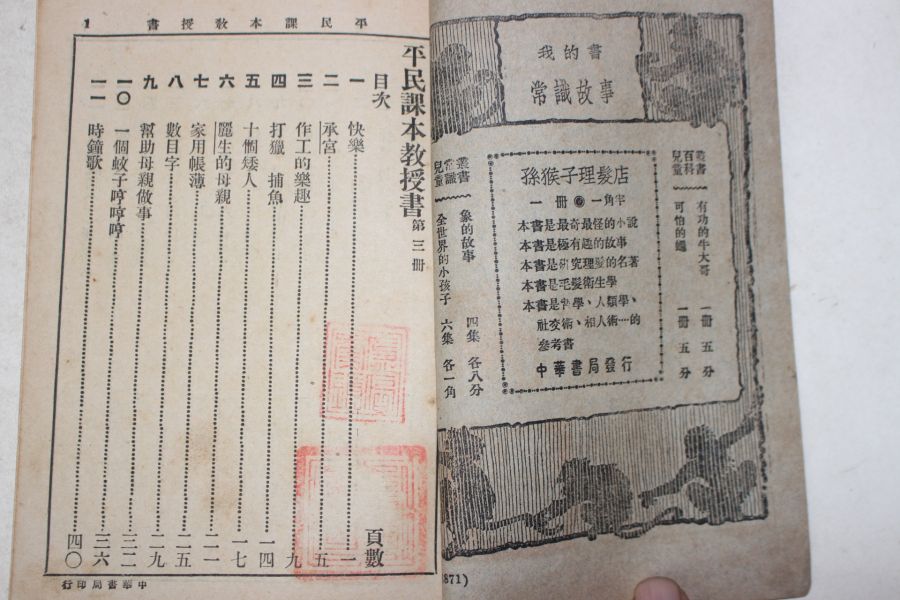 我的書
常識故事
兒童百科叢書
有功的牛大哥 一冊 五分
可怕的蠅 一冊 五分
孫猴子理髮店
一冊 一角半
本書是最奇最怪的小說
本書是最極有趣的故事
本書是研究理髮的名著
本書是毛髮衛生學
本書是哲學、人類學、
社交術、相人術……的
參考書
中華書局發行
兒童常識叢書
象的故事 四集 各八分
全世界的小孩子 六集 各一角
871)
平民課本教授書
1
平民課本教授書 第三冊
目次 頁數
一 快樂 一
二 承宮 五
三 作工的樂趣 九
四 打獵 捕魚 一四
五 十個矮人 一七
六 麗生的母親 二一
七 家用帳薄 二五
八 數目字 二九
九 幫助母親做事 三二
一〇 一個蚊子哼哼哼 三六
一一 時鐘歌 四〇
中華書局印行